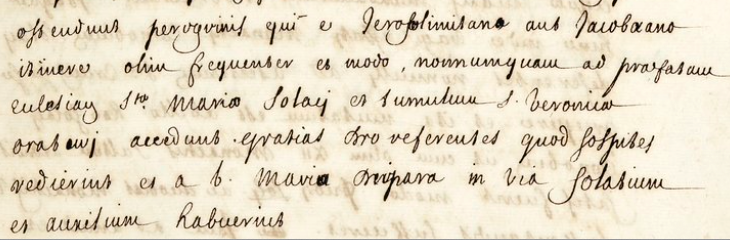 ostendunt peregrini qui e Jerosolimitano aut Jacobæano
itinere olim frequenter et modo, nonnumquam ad præfatam
ecclesiam Stæ Mariæ Solacij et tumulum S. Veronicæ
oraturj accedunt gratias Deo referentes quod sospites
redierint et a b. Maria Deipara in via solatium
et auxilium habuerint